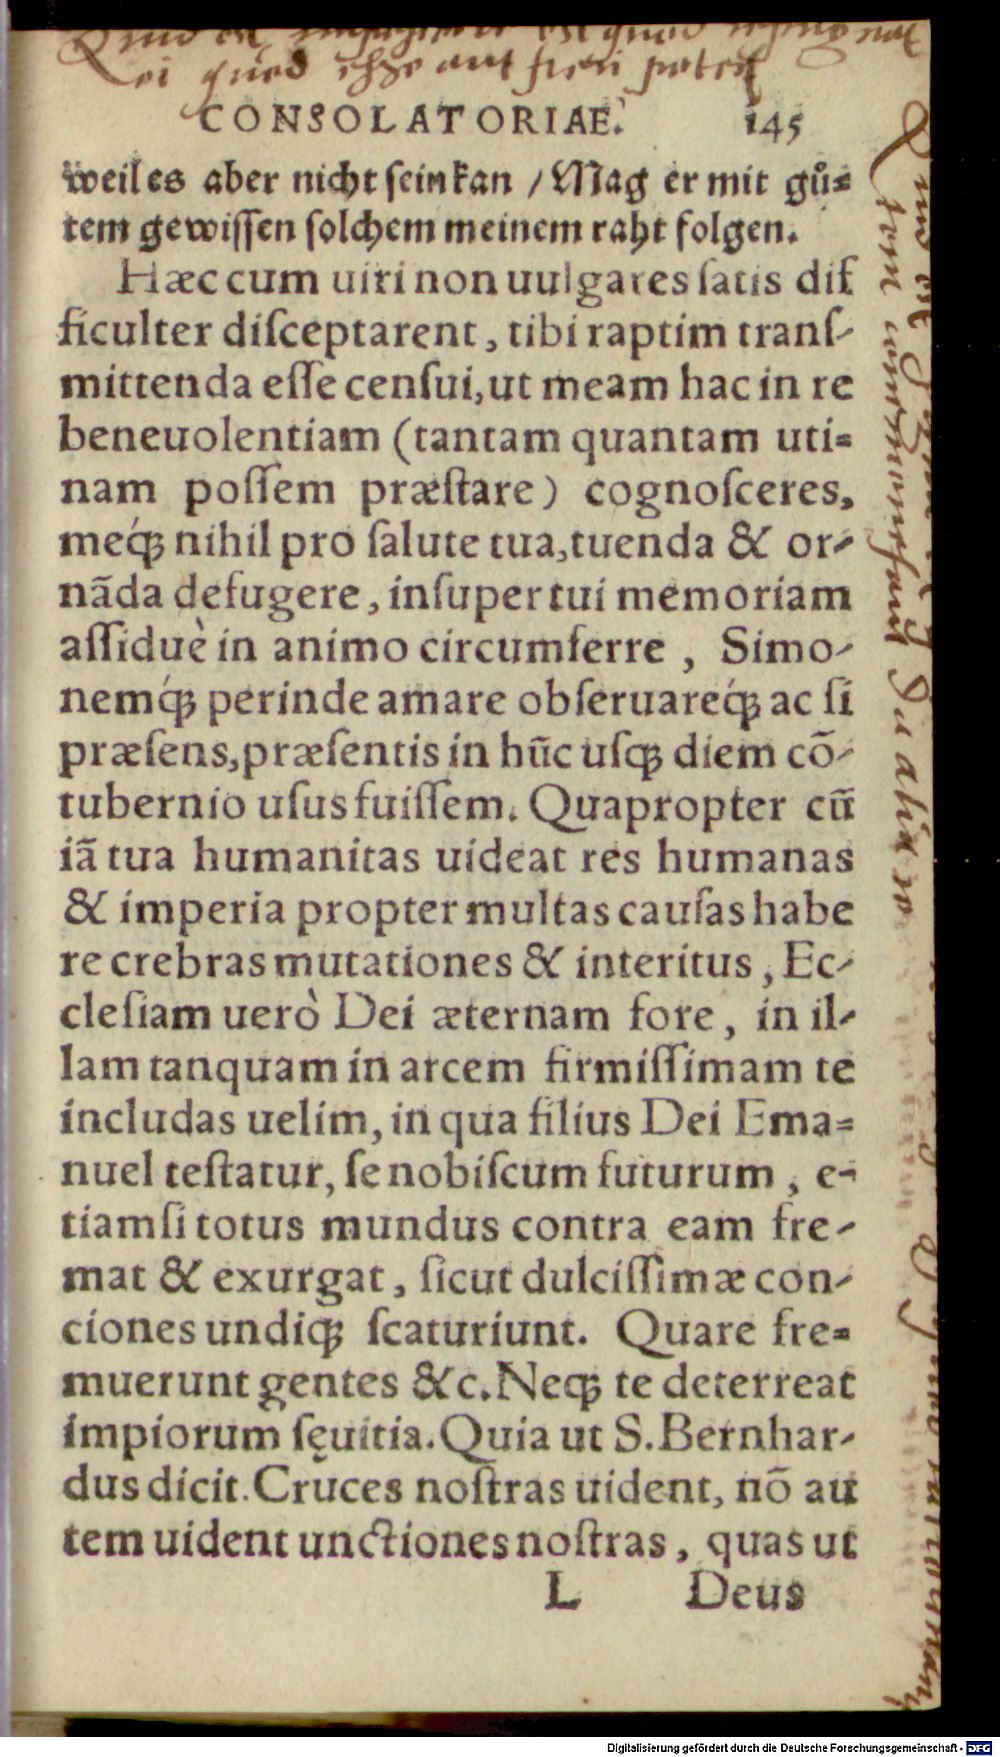 CONSOLATORIAE. 145
weil es aber nicht sein kan / Mag er mit gů=
tem gewissen solchem meinem raht folgen.
Hæc cum uiri non uulgares ſatis dif
ficulter diſceptarent, tibi raptim tranſ-
mittenda eſſe cenſui, ut meam hac in re
beneuolentiam (tantam quantam uti=
nam poſſem præſtare) cognoſceres,
meq́ꝫ nihil pro ſalute tua, tuenda & or-
nãda defugere, inſuper tui memoriam
aſſiduè in animo circumferre, Simo-
nemq́ꝫ perinde amare obſeruareq́ꝫ ac ſi
præſens, præſentis in hũc uſqꝫ diem cõ-
tubernio uſus fuiſſem. Quapropter cũ
iã tua humanitas uideat res humanas
& imperia propter multas cauſas habe
re crebras mutationes & interitus, Ec-
cleſiam uerò Dei æternam fore, in il-
lam tanquam in arcem firmiſſimam te
includas uelim, in qua filius Dei Ema=
nuel teſtatur, ſe nobiſcum futurum, e-
tiamſi totus mundus contra eam fre-
mat & exurgat, ſicut dulciſſimæ con-
ciones undiqꝫ ſcaturiunt. Quare fre=
muerunt gentes &c. Neqꝫ te deterreat
impiorum ſęuitia. Quia ut S. Bernhar-
dus dicit. Cruces noſtras uident, nõ au
tem uident unctiones noſtras, quas ut
L Deus
Digitalisierung gefördert durch die Deutsche Forschungsgemeinschaft - DFG